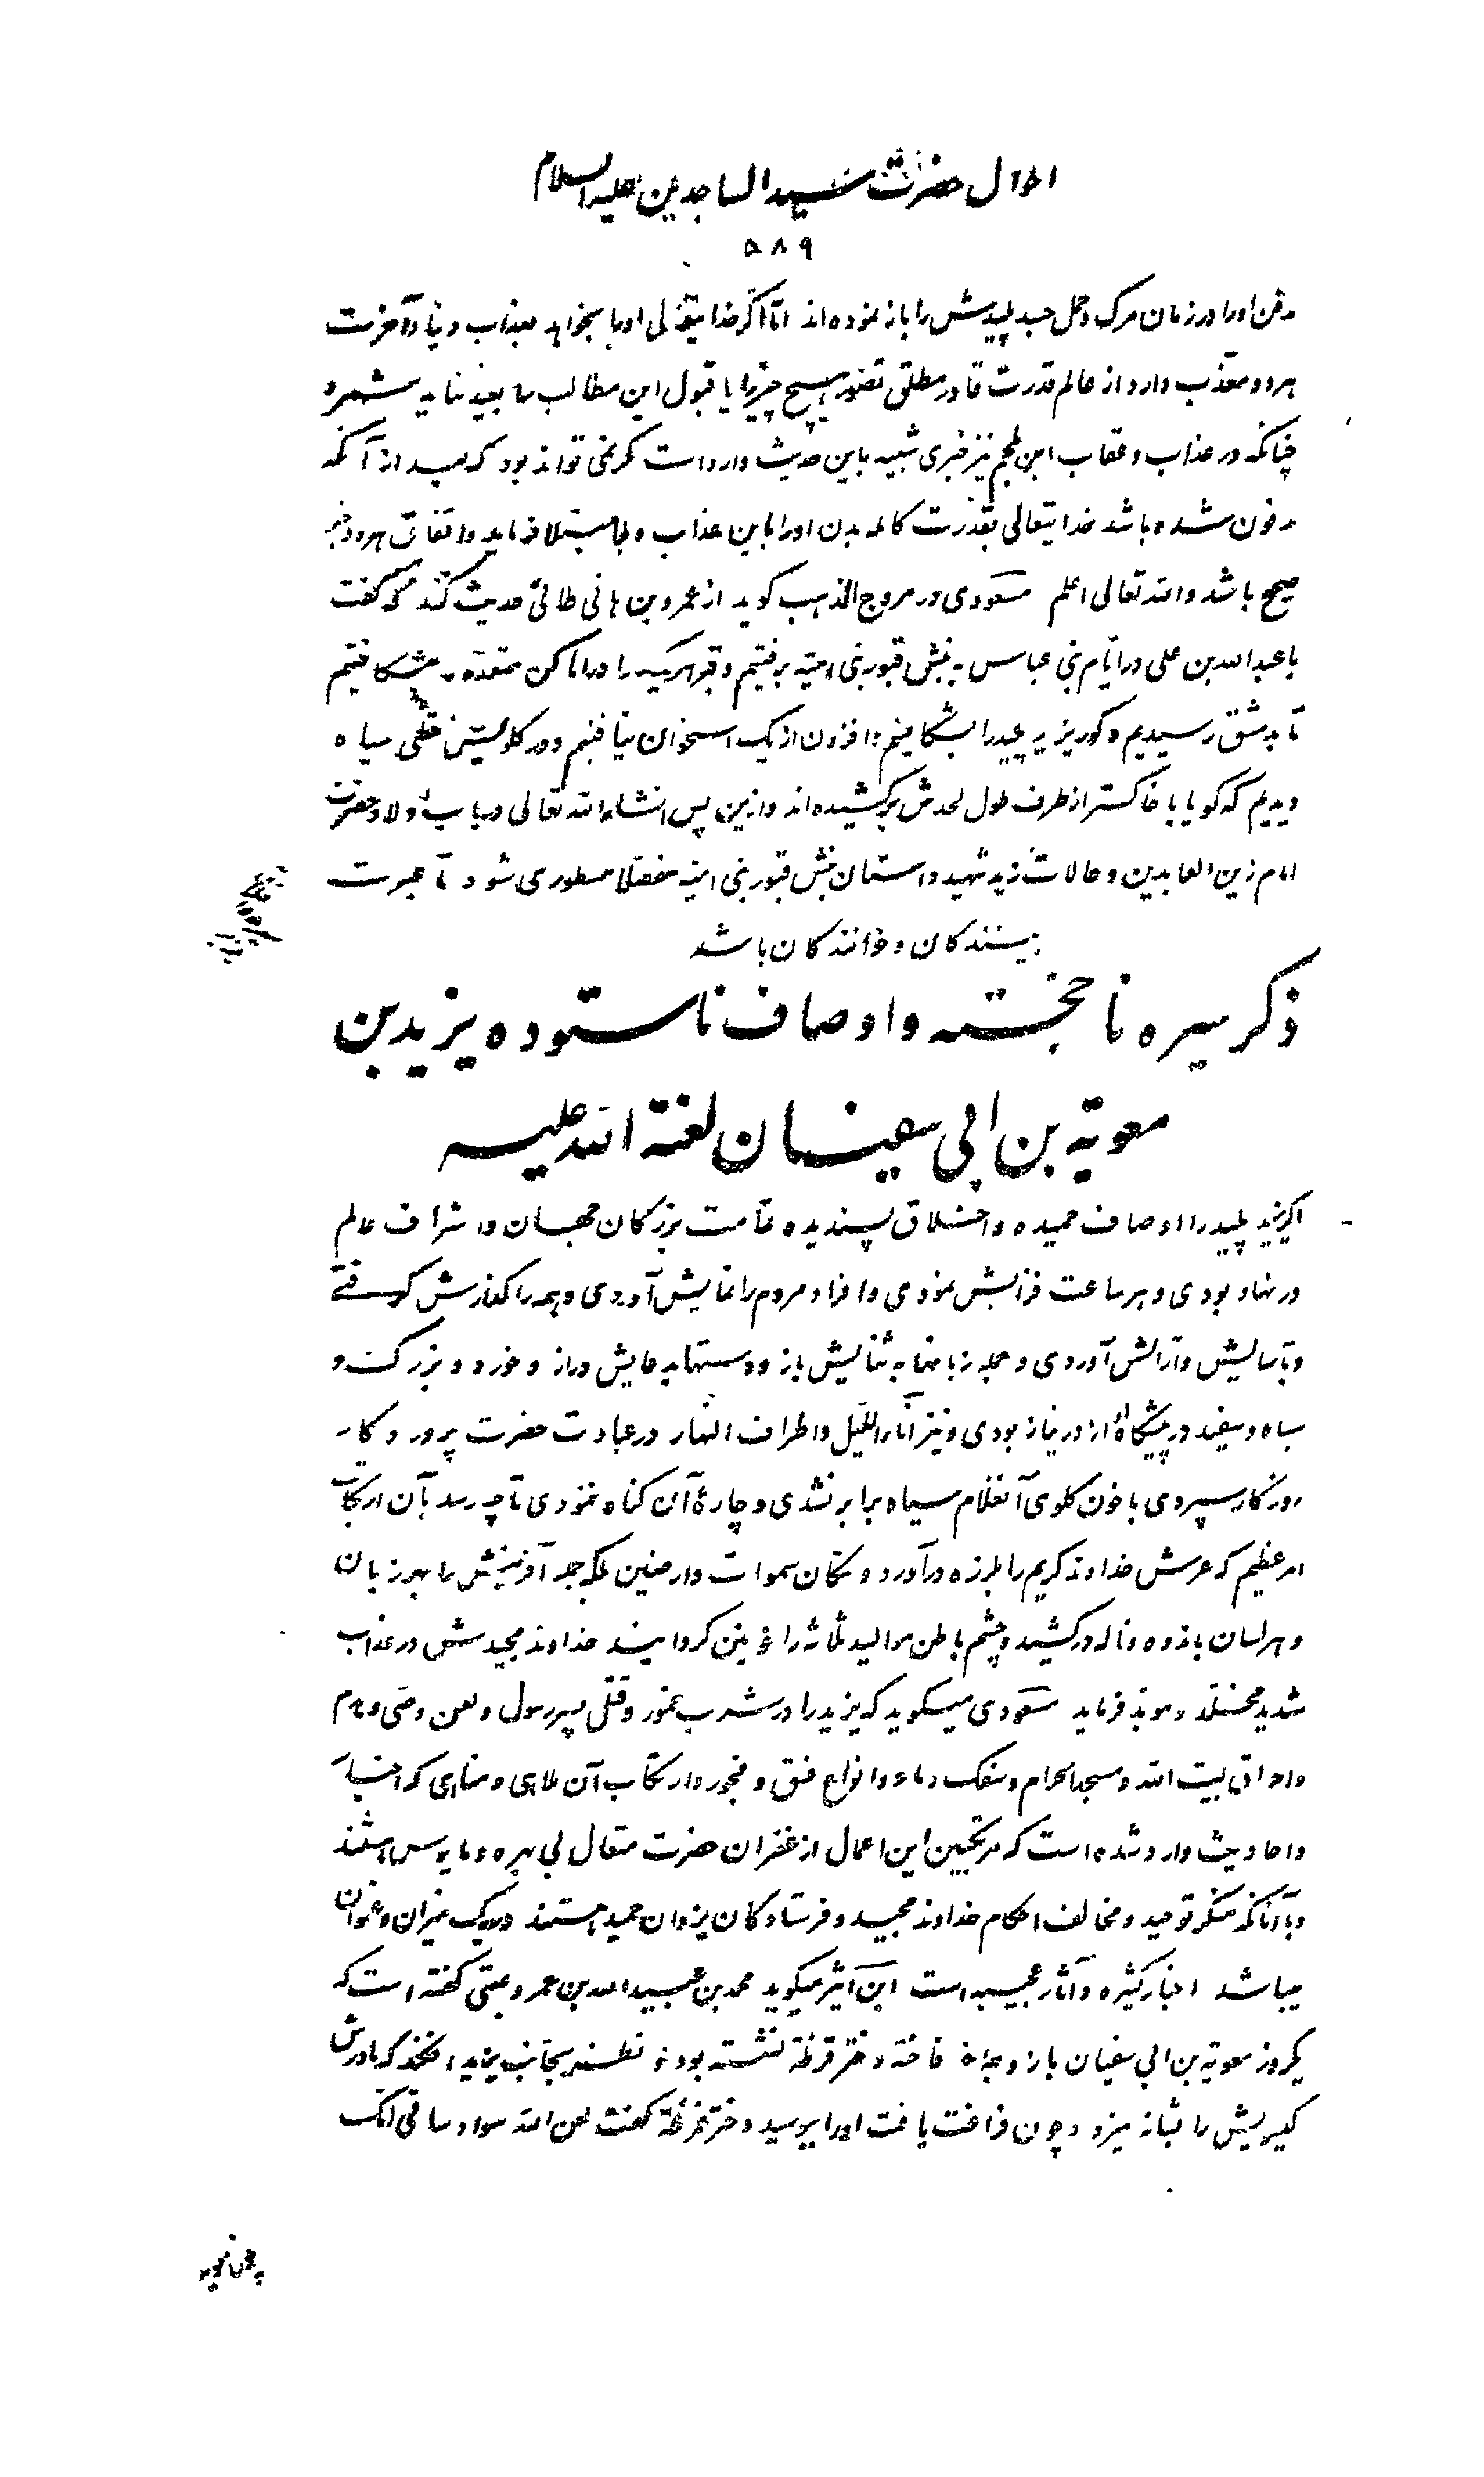 احوال حضرت سید الساجدین علیه السلام
۵۸۹
دفن او را در زمان مرک و حمل جسد پلیدش را باز نموده اند اما اگر خدا یتعالی او را بخواهد بعذاب دنیا و آخرت
هر دو معذب دارد از عالم قدرت قادر مطلق تصور هیچ چیز را یا قبول این مطالب را بعید نباید شمرد
چنانکه در عذاب و عقاب ابن ملجم نیز خبری شبیه باین حدیث وارد است مکر نمی تواند بود که بعید از آنکه
مدفون شده باشد خدا یتعالی بقدرت کامله بدن او را باین عذاب و بلا مبتلا فرماید و اتفاق هر دو خبر
صحیح باشد والله تعالی اعلم مسعودی در مروج الذهب کوید از عمرو بن هانی طائی حدیث کنند که گفت
با عبدالله بن علی در ایام بنی عباس به نبش قبور بنی امیه برفتیم و قبر هر یک را در اماکن متعدده بشکافتیم
تا بدمشق رسیدیم و کور یزید پلید را بشکافتیم و افزون از یک استخوان نیافتیم و در کلو لیتش خطی سیاه
دیدیم که کویا با خاکستر از طرف طول لحدش برکشیده اند و ازین پس انشاء الله تعالی در باب اولاد حضرت
امام زین العابدین و حالات زید شهید داستان نبش قبور بنی امیه مفصلا مسطور می شود تا عبرت
بینندکان و خوانندکان باشد
ذکر سیره ناخجسته و اوصاف ناستوده یزید بن
معویة بن ابی سفیان لعنة الله علیه
اکر یزید پلید را اوصاف حمیده و اخلاق پسندیده تمامت بزرکان جهان و اشراف عالم
در نهاد بودی و هر ساعت فزایش نمودی و افراد مردم را نمایش آوردی و همه را کفایش گرفتی
و بآسایش و آرایش آوردی و جمله زبانها به ثنایش باز و دستها بدعایش دراز و خورد و بزرک و
سیاه و سفید در پیشگاه او در نیاز بودی و نیز آناء اللیل و اطراف النهار در عبادت حضرت پروردکار
روزکار سپردی با خون کلوی آنغلام سیاه برابر نشدی و چارۀ آن کناه ننمودی تا چه رسد بآن ارتکاب
امر عظیم که عرش خداوند کریم را بلرزه در آورد و سکان سموات و ارضین بلکه جمله آفرینش را بهر زبان
و هر لسان باندوه و ناله در کشید و چشم باطن موالید ثلاثه را خونین کردانید خداوند مجیدش در عذاب
شدید مخلد و موبد فرماید مسعودی میکوید که یزید را در شرب خمور و قتل پسر رسول و لعن وصی و هدم
و احراق بیت الله و مسجد الحرام و سفک دماء و انواع فسق و فجور و ارتکاب آن ملاهی و مناهی که اخبار
و احادیث وارد شده است که مرتکبین این اعمال از غفران حضرت متعال بی بهره و مایوس هستند
و با آنانکه منکر توحید و مخالف احکام خداوند مجید و فرستادکان یزدان حمید هستند در یک میزان و عنوان
میباشد اخبار کثیره و آثار عجیبه است ابن اثیر میکوید محمد بن عبیدالله بن عمرو عتبی کفته است که
یکروز معویة بن ابی سفیان با زوجه اش فاخته دختر قرظة نشسته بود و نظر بجانب یزید افکند که مادرش
کیسویش را بشانه میزد و چون فراغت یافت او را ببوسید دختر قرظة کفت لعن الله سواد ساقی امک